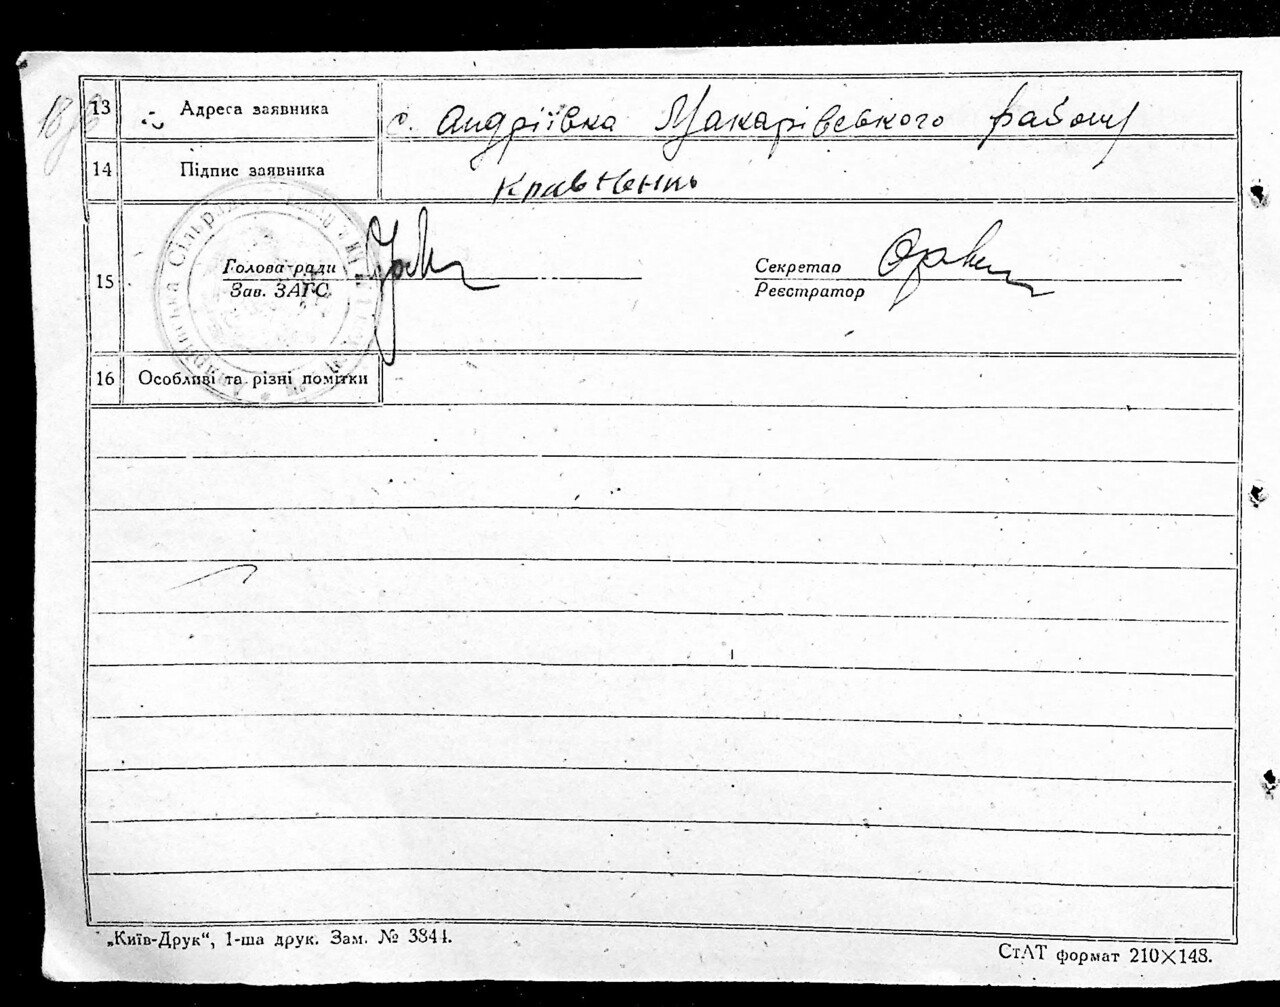 13 Адреса заявника с. Андріївка Макарівського району
14 Підпис заявника Кравченко
15 Голова ради
Зав. ЗАГС
Секретар
Реєстратор
16 Особливі та різні помітки
„Київ-Друк“, 1-ша друк. Зам. № 3844.
СтАТ формат 210×148.